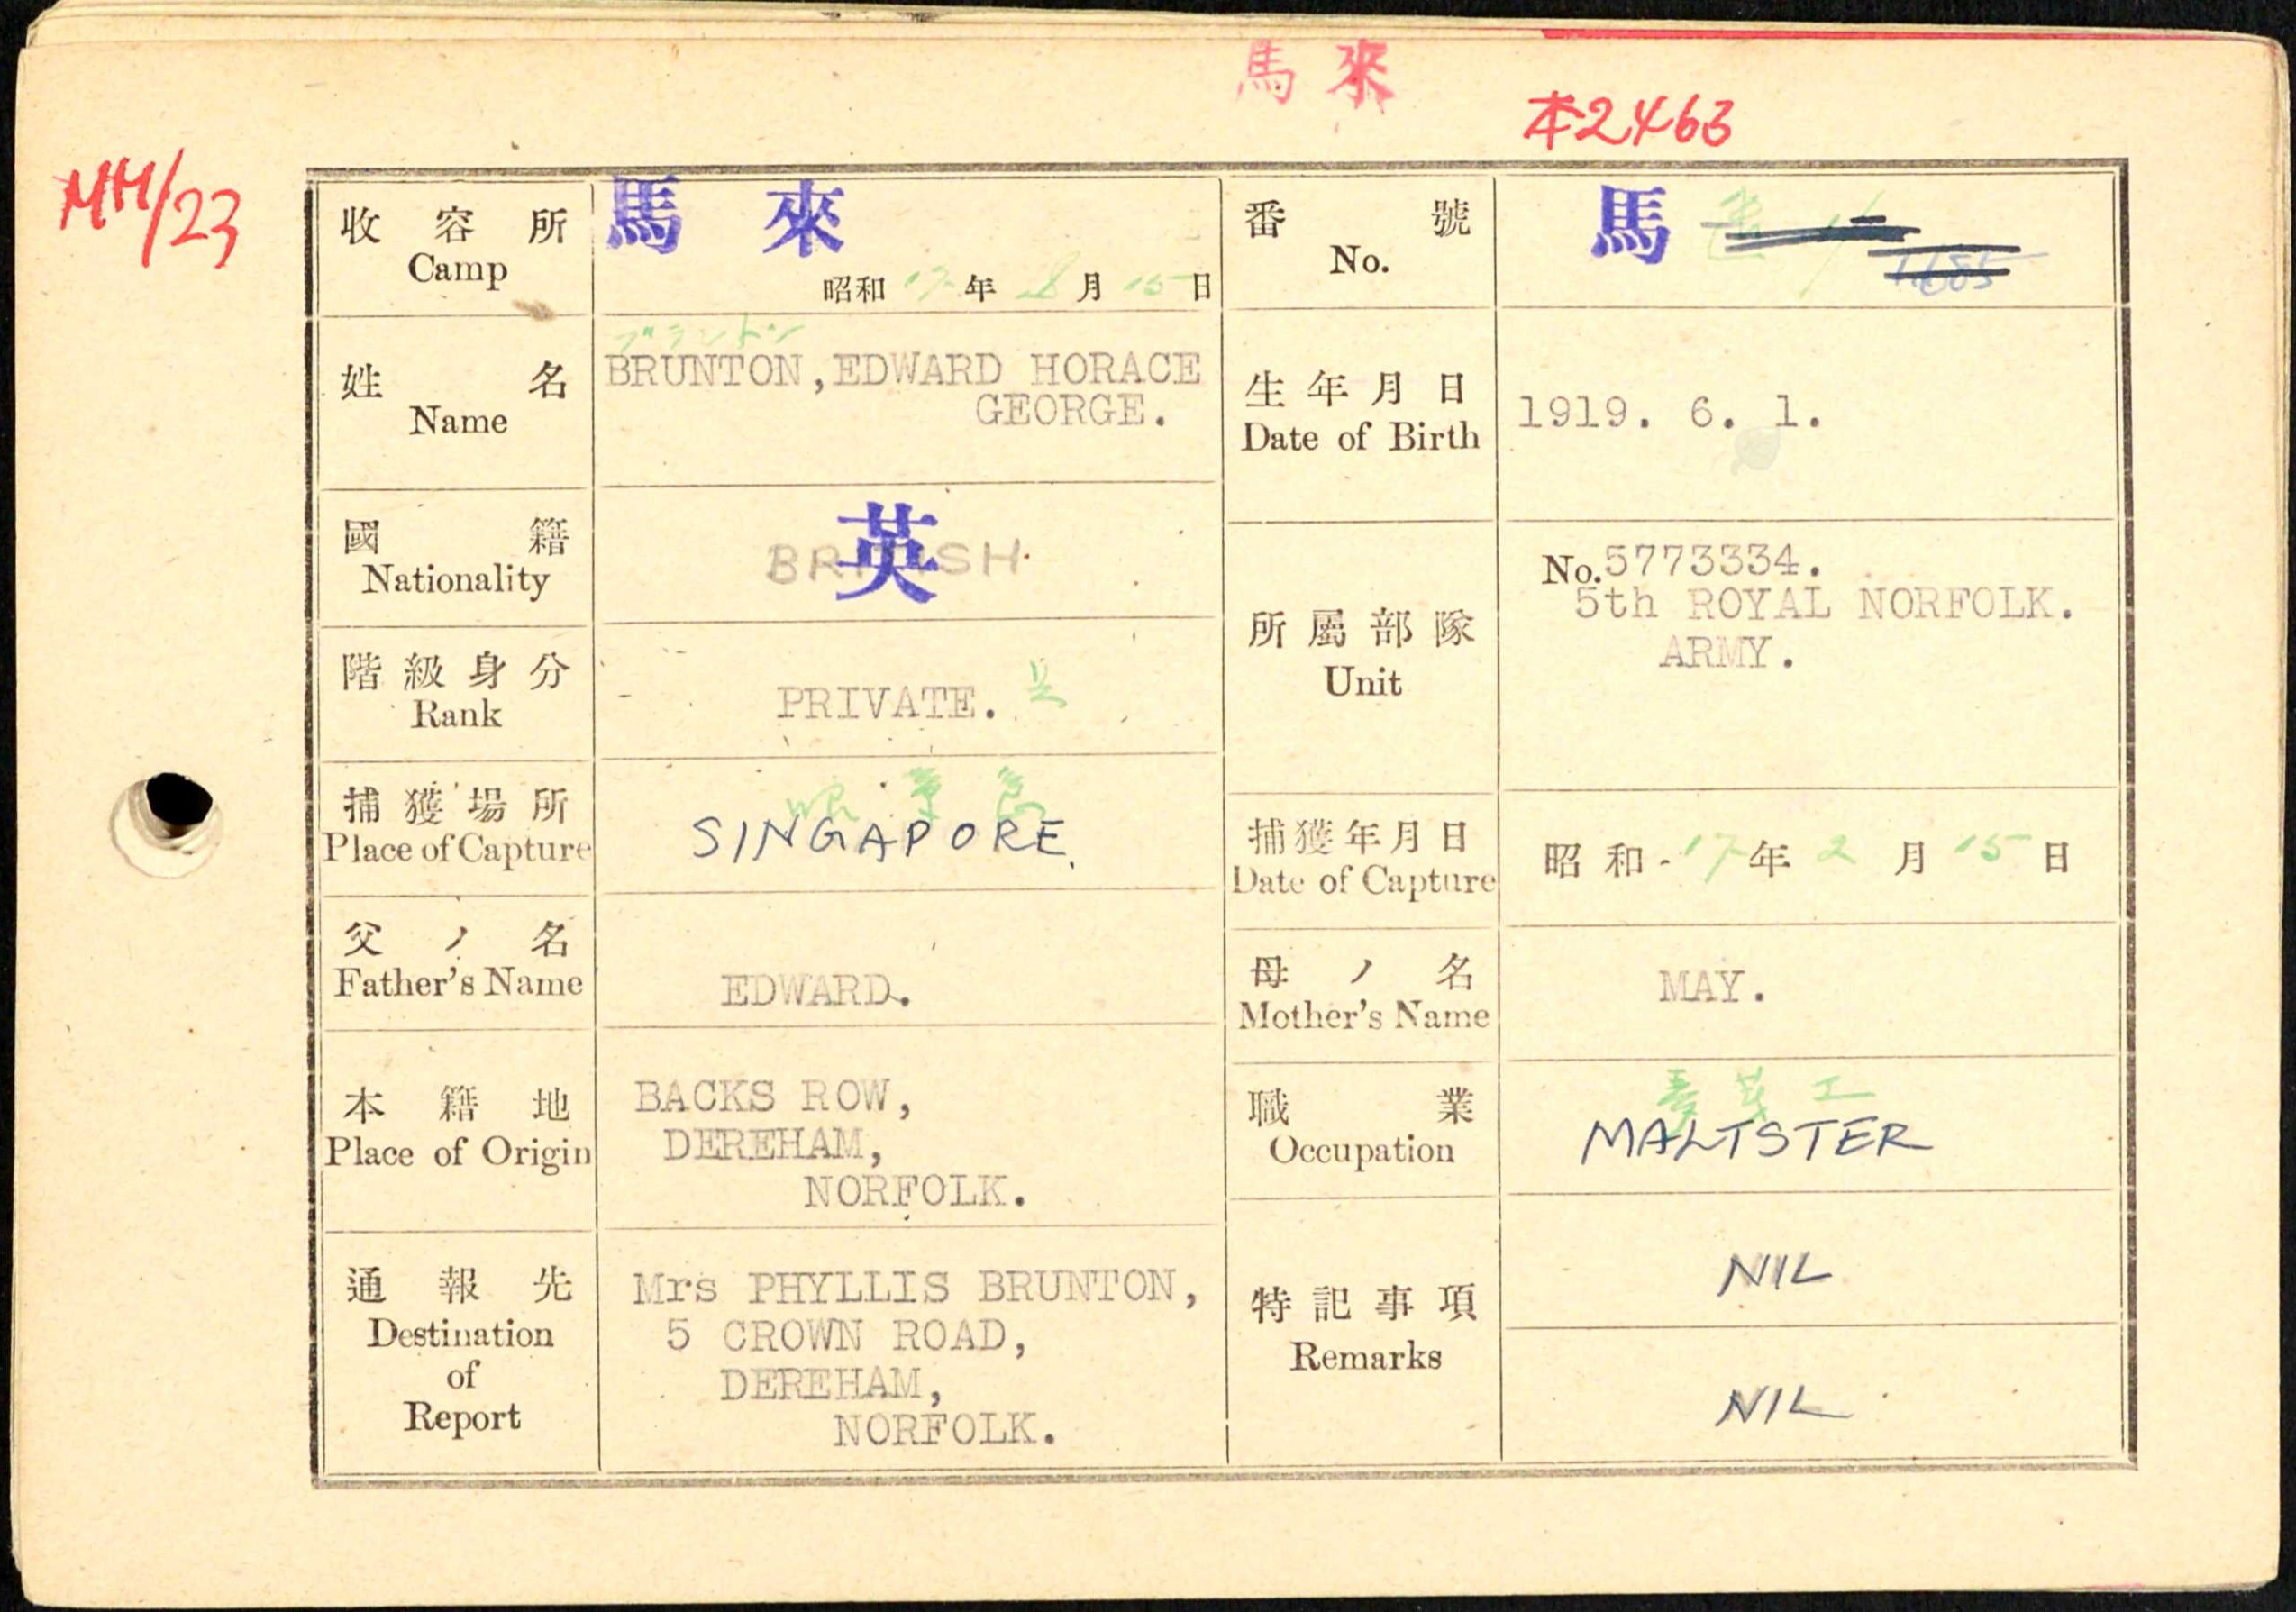 馬來
本2463
MH/23
收容所
Camp
馬來
昭和17年8月15日
番號
No.
馬
1685
姓名
Name
ブラントン
BRUNTON,EDWARD HORACE
GEORGE.
生年月日
Date of Birth
1919. 6. 1.
國籍
Nationality
BRITISH
英
所屬部隊
Unit
No.5773334.
5th ROYAL NORFOLK.
ARMY.
階級身分
Rank
PRIVATE. 兵
捕獲場所
Place of Capture
昭南島
SINGAPORE.
捕獲年月日
Date of Capture
昭和17年2月15日
父ノ名
Father's Name
EDWARD.
母ノ名
Mother's Name
MAY.
本籍地
Place of Origin
BACKS ROW,
DEREHAM,
NORFOLK.
職業
Occupation
麦芽工
MALTSTER
通報先
Destination
of
Report
Mrs PHYLLIS BRUNTON,
5 CROWN ROAD,
DEREHAM,
NORFOLK.
特記事項
Remarks
NIL
NIL